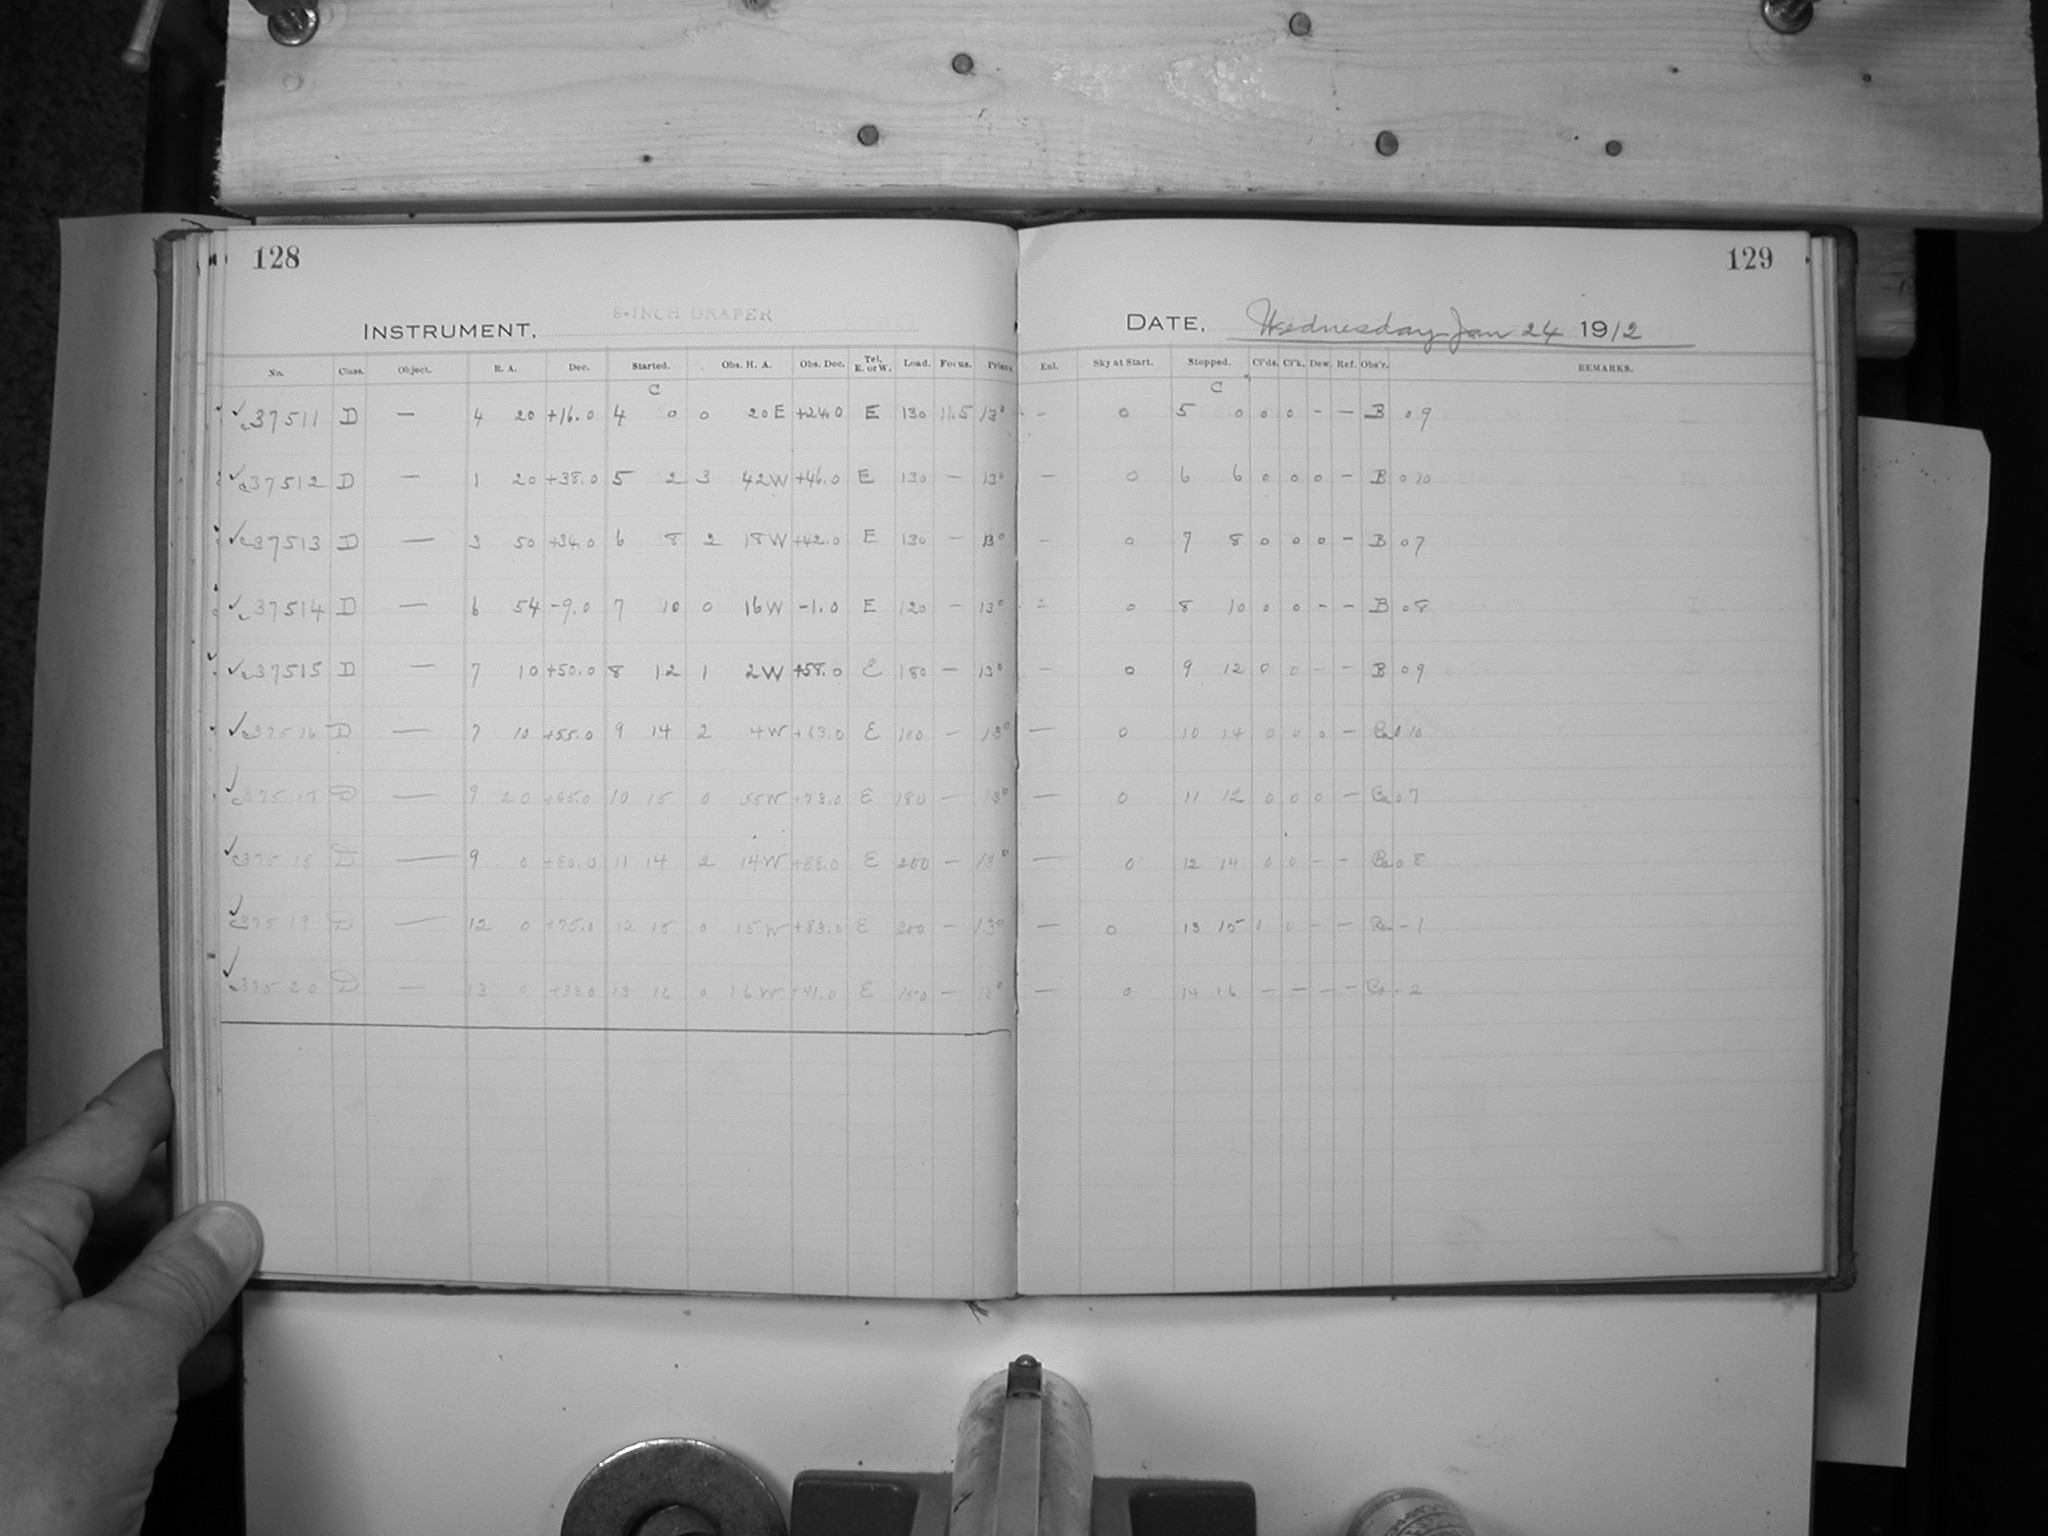 128
129
8-INCH DRAPER
INSTRUMENT.
DATE. Wednesday Jan 24 1912
No. Class. Object. R. A. Dec. Started. Obs. H. A. Obs. Dec. Tel. E. or W. Load. Focus. Prism Enl. Sky at Start. Stopped. Cl'ds. Cl'k. Dew. Ref. Obs'r. REMARKS.
C C
✓c37511 D — 4 20 +16.0 4 0 0 20 E +24.0 E 130 11.5 13° - 0 5 0 0 0 - - B 09
✓c37512 D — 1 20 +38.0 5 2 3 42W +46.0 E 130 — 13° — 0 6 6 0 0 0 - B 0 10
✓c37513 D — 3 50 +34.0 6 8 2 18W +42.0 E 130 - 13° - 0 7 8 0 0 0 - B 07
✓c37514 D — 6 54 -9.0 7 10 0 16W -1.0 E 120 - 13° - 0 8 10 0 0 - - B 08
✓c37515 D — 7 10 +50.0 8 12 1 2W +58.0 E 180 — 13° — 0 9 12 0 0 - - B 09
✓c37516 D — 7 10 +55.0 9 14 2 4W +63.0 E 180 - 13° — 0 10 14 0 0 0 - 0 10
✓c37517 D — 9 20 +65.0 10 15 0 55W +73.0 E 180 — 13° — 0 11 12 0 0 0 — 07
✓c37518 D — 9 0 +80.0 11 14 2 14W +88.0 E 200 - 13° — 0 12 14 0 0 - - 08
✓c37519 D — 12 0 +75.0 12 15 0 15W +83.0 E 200 - 13° — 0 13 15 0 0 - - - 1
✓c37520 D — 13 0 +33.0 13 16 0 16W +41.0 E 150 — 13° — 0 14 16 - - - - - 2